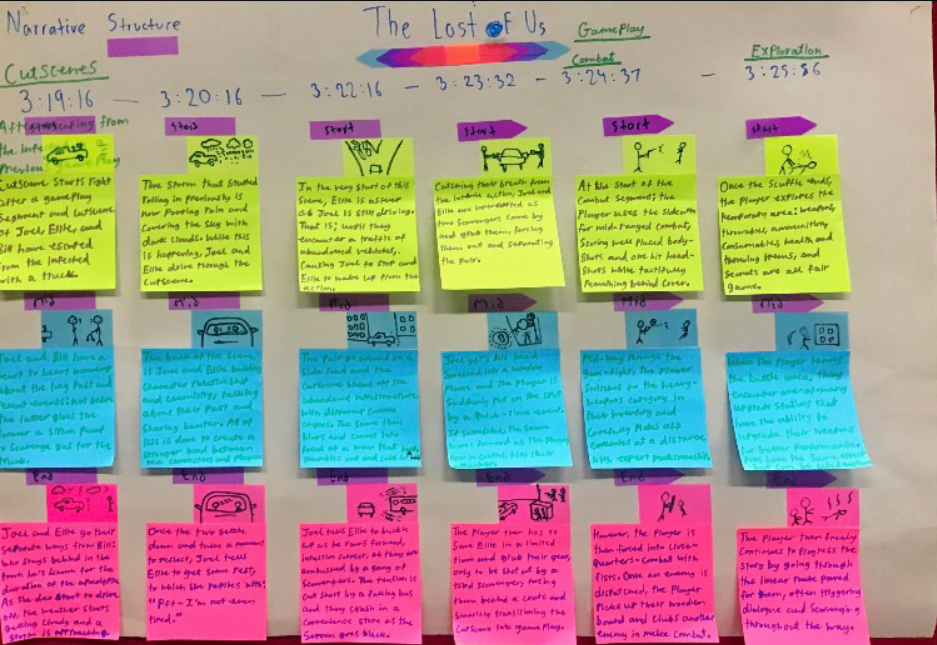 Narrative Structure
The Lost of Us
GamePlay
Combat
Exploration
CutScenes
3:19:16 — 3:20:16 — 3:22:16 — 3:23:32 — 3:24:37 — 3:25:56
After escaping from
the
Previous Play
Start
Start
Start
Start
Start
CutScene Starts right
after a gameplay
Segment and Cutscene
of Joel, Ellie, and
Bill have escaped
from the infected
with a truck.
The Storm that Started
rolling in previously is
now Pouring rain and
Covering the Sky with
dark Clouds. While this
is happening, Joel and
Ellie drive through the
CutScene.
In the very Start of this
Scene, Ellie is asleep
as Joel is Still driving.
That is; until they
encounter a traffic of
abandoned vehicles,
Causing Joel to Stop and
Ellie to wake up from the
action.
Catching their breath from
the action, Joel and
Ellie are as
two Scavengers come by
and grab them, forcing
them out and separating
the pair.
At the Start of the
Combat Segment; the
Player uses the
for mid-ranged Combat,
Scoring well placed body-
Shots and one hit head-
Shots while tactfully
remaining behind Cover.
Once the Scuffle ends,
the Player explores the
area: weapons,
throwables, ammunition,
Consumables, health and
items, and
Secrets are all fair
game.
Mid
Mid
Mid
Mid
Mid
Mid
Joel and Bill have a
heart to heart moment
about the long Past and
recent events: not before
the latter gives the
former a Siphon Pump
to Scavenge gas for the
truck.
The bulk of the Scene
is Joel and Ellie building
Character relationship
and chemistry, talking
about their Past and
Sharing banter. All of
this is done to create a
Stronger bond between
the Characters and Player.
The Pair go around on a
Side road and the
CutScene Shows off the
abandoned infrastructure
with different Camera
angles. The Scene then
and comes into
of a man that
out and
Joel gets his head
into a window
and the Player is
Suddenly put on the Spot
by a Quick-time-event.
If Successful, the Scene
moves forward as the Player,
now in Control, kills their
Mid-way through the
gun-fight, the Player
Switches to the heavy-
weapons Category in
their inventory and
Carefully Picks off
enemies at a distance
with expert marksmanship.
When the Player leaves
the battle area, they
encounter one-of-many
upgrade Stations that
have the ability to
upgrade their weapons
for better Performance.
End
End
End
End
End
End
Joel and Ellie go their
Separate ways from Bill:
who Stays behind in the
town he's known for the
duration of the apocalypse.
As the duo Start to drive
off, the weather Starts
getting Cloudy and a
Storm is approaching.
Once the two Settle
down and take a moment
to reflect, Joel tells
Ellie to get Some rest,
to which She replies with:
"Pft-I'm not even
tired."
Joel tells Ellie to buckle
up as he rams forward,
intuition correct, as they are
ambushed by a gang of
Scavengers. The tension is
Cut Short by a falling bus
and they Crash in a
Convenience Store as the
Screen goes black.
The Player then has to
Save Ellie in a limited
time and grab their gear,
only to be Shot at by a
third Scavenger, forcing
them behind a and
Smoothly transitioning the
CutScene into gameplay.
However, the Player is
then forced into Close-
quarters-Combat with
fists. Once an enemy is
dispatched, the Player
Picks up their wooden
board and Clubs another
enemy in melee Combat.
The Player then freely
Continues to Progress the
Story by going through
the linear route paved
for them, often triggering
dialogue and Scavenging
throughout the way.